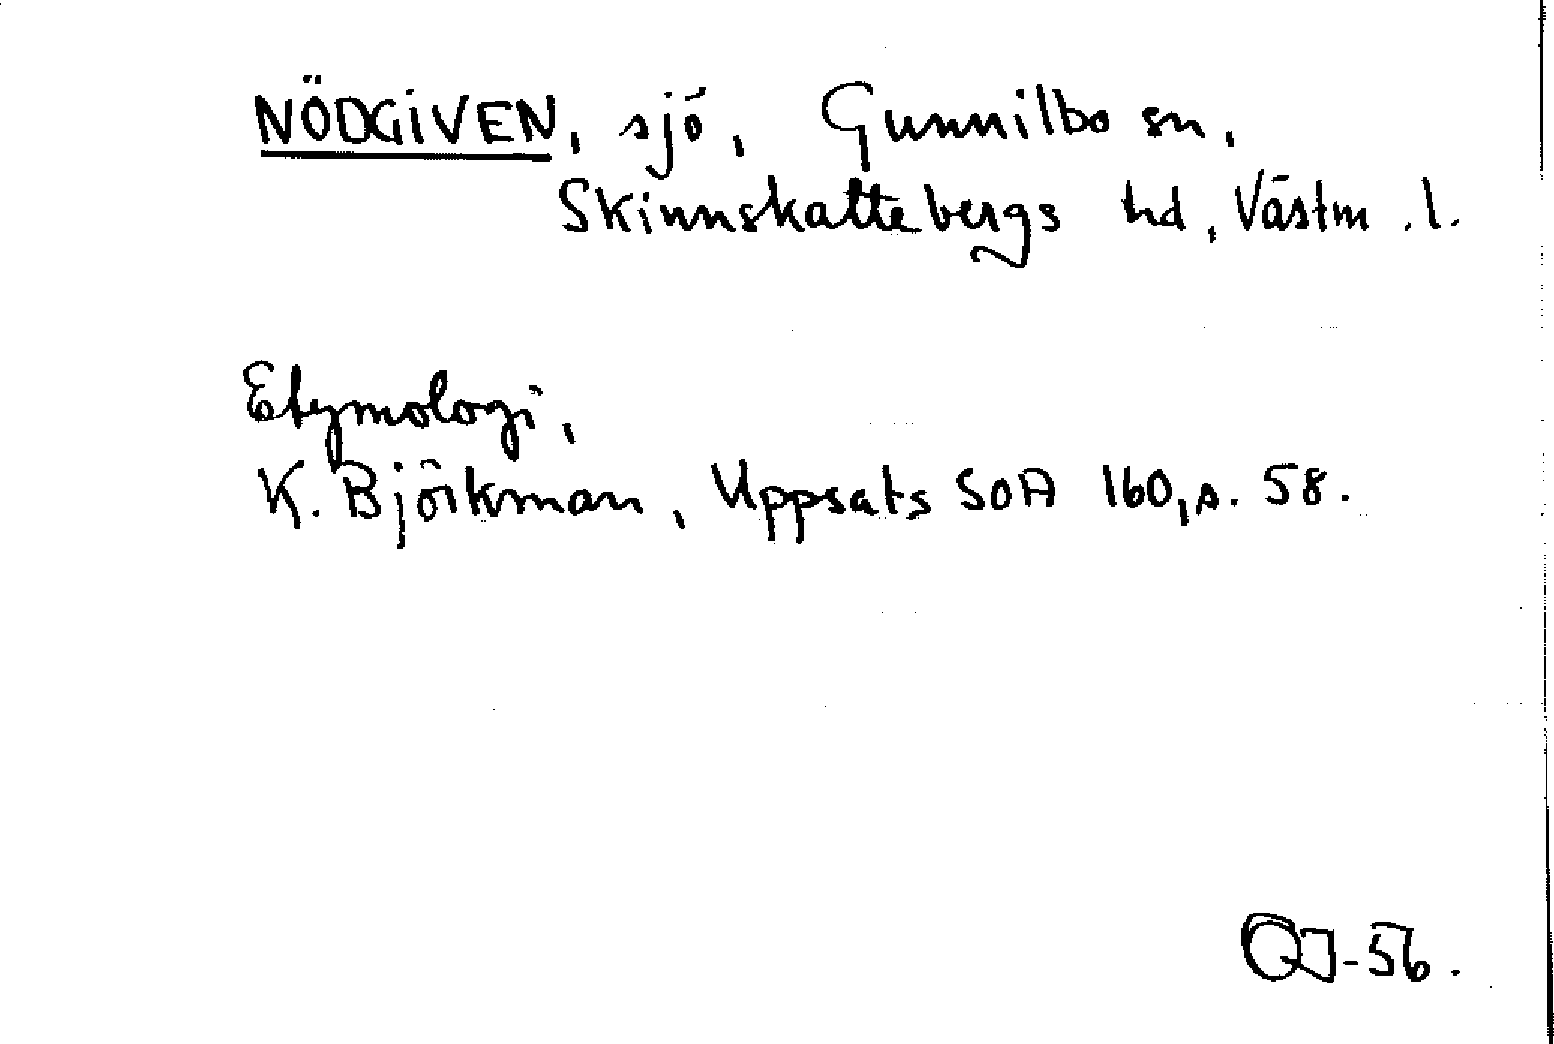 NÖDGIVEN, sjö, Gunnilbo sn,
Skinnskattebergs hd, Västm.l.
Etymologi,
K. Björkman, Uppsats SOA 160, s. 58.
-56.